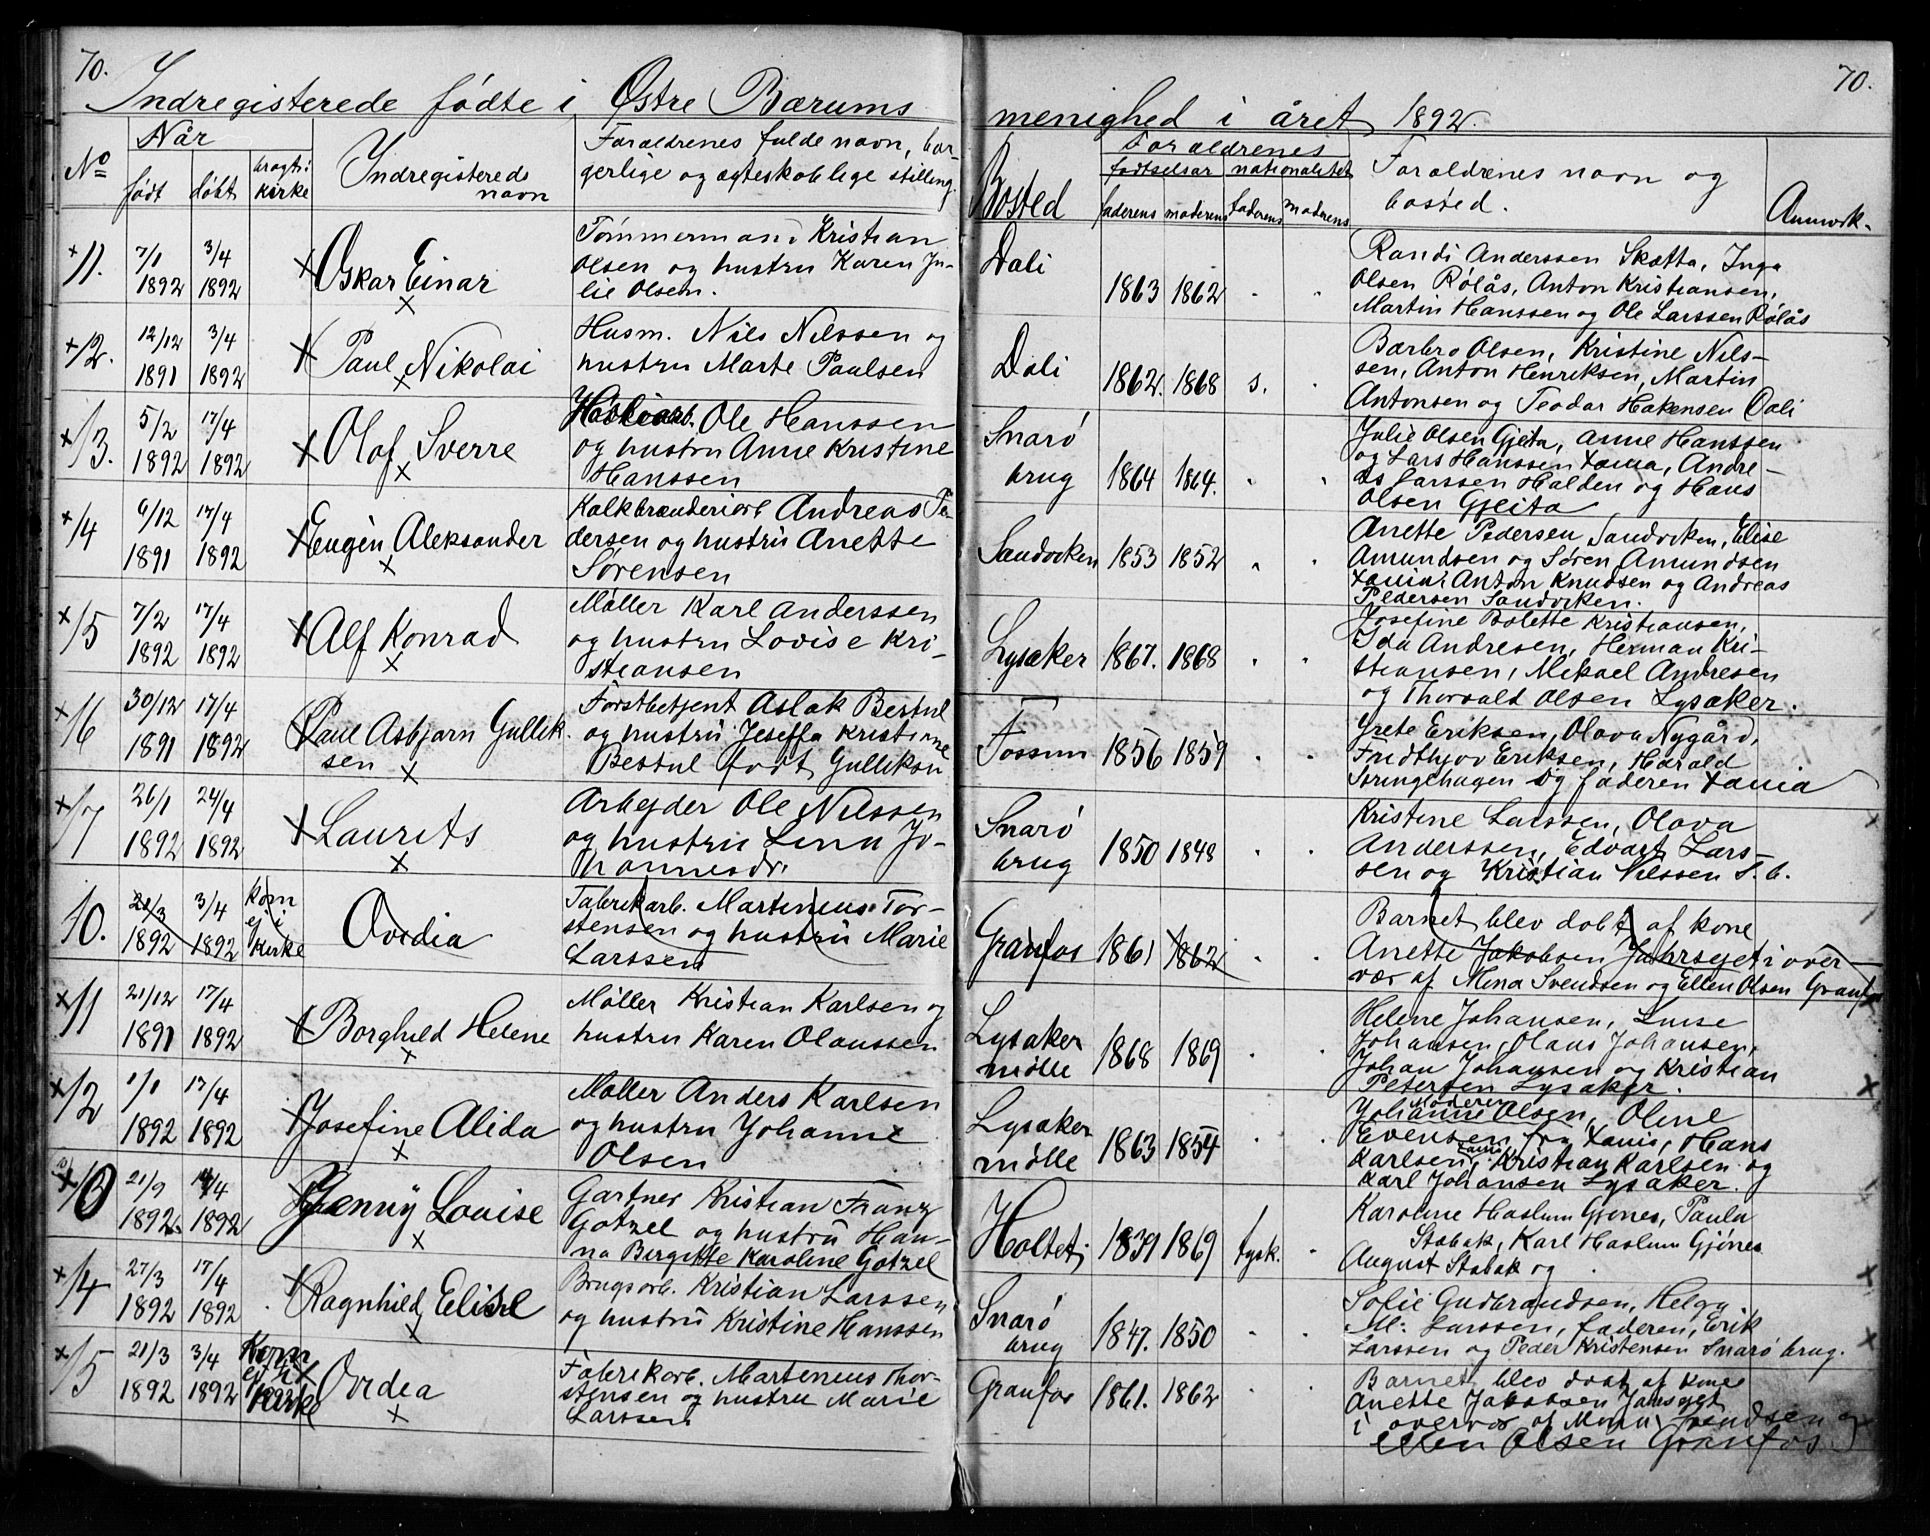 70.
Indregisterede fødte i Østre Bærums
menighed i året 1892.
70.
No
Når
født
døbt
bragt i kirke
Indregistereds navn
Foraldrenes fulde navn, bor-
gerlige og ægteskablige stilling.
Bosted
Foraldrenes
fødselsår nationalitet
faderens moderens faderens moderens
Foraldrenes navn og
bosted.
Anmærk.
11. 7/1 1892 3/4 1892
Oskar Einar
Tømmermand Kristian
Olsen og hustru Karen Ju-
lie Olsen.
Dali 1863 1862
Randi Anderssen Skotta, Inga
Olsen Rølås, Anton Kristiansen,
Martin Hanssen og Ole Larssen Rølås
12. 12/12 1891 3/4 1892
Paul Nikolai
Husm. Nils Nilssen og
hustru Marte Paulsen
Dali 1862. 1868 s.
Barbro Olsen, Kristine Nils-
sen, Anton Henriksen, Martin
Antonsen og Teodor Hakensen Dali
13. 5/2 1892 17/4 1892
Olaf Sverre
Ole Hanssen
og hustru Anne Kristine
Hanssen
Snarø
brug 1864 1864.
Julie Olsen Gjeita, Anne Hanssen
og Lars Hanssen Tanum, Andre-
as Larssen Halden og Hans
Olsen Gjeita
14 6/12 1891 17/4 1892
Eugen Aleksander
Kalkbrænderiarb Andreas Pe-
dersen og hustru Anette
Sørensen
Sandviken 1853 1852
Anette Pedersen Sandviken, Elise
Amundsen og Søren Amundsen
Anton Knudsen og Andreas
Pedersen Sandviken.
15 7/2 1892 17/4 1892
Alf Konrad
Møller Karl Anderssen
og hustru Lovise Kri-
stiansen
Lysaker 1867. 1868
Josefine Bolette Kristiansen,
Ida Andresen, Herman Kri-
stiansen, Mikael Andresen
og Thorvald Olsen Lysaker.
16 30/12 1891 17/4 1892
Paul Asbjørn Gullik-
sen
Forstbetjent Aslak Bestul
og hustru Joseffa Kristine
Bestul født Gulliksen
Fossum 1856 1859
Grete Eriksen, Olava Nygård,
Fridthjov Eriksen, Harald
Stringehagen og faderen
17 26/1 1892 24/4 1892
Laurits
Arbejder Ole Nilssen
og hustru Lena Jo-
hannesdr.
Snarø
brug 1850 1848
Kristine Larssen, Olava
Anderssen, Edvart Lars-
sen og Kristian Nilssen S. b.
10. 21/3 1892 3/4 1892 kom ej i kirke
Ovedia
Fabrikarb. Martinius Tor-
stensen og hustru Marie
Larssen
Granfos 1861 1862
Barnet blev døbt af kone
Anette Jakobsen Jahrsyet i over-
vær af Mina Svendsen og Ellen Olsen Granfos
11 21/12 1891 17/4 1892
Borghild Helene
Møller Kristian Karlsen og
hustru Karen Olaussen
Lysaker
mølle 1868 1869
Helene Johansen, Luise
Johansen, Olaus Johansen,
Johan Johansen og Kristian
Petersen Lysaker.
12 1/1 1892 17/4 1892
Josefine Alida
Møller Anders Karlsen
og hustru Johanne
Olsen
Lysaker
mølle 1863 1854
Moderen
Johanne Olsen, Oline
Evensen, Hans
Karlsen, Kristian Karlsen og
Karl Johansen Lysaker.
21/9 1892. 14/4 1892
Jenny Louise
Gartner Kristian Franz
Gotzel og hustru Han-
na Birgitte Karoline Gotzel
Holtet 1839 1869 tysk.
Karoline Haslum Gjønes, Paula
Stabak, Karl Haslum Gjønes
August Stabak og
14 27/3 1892 17/4 1892
Ragnhild Elise
Brugsarb. Kristian Larssen
og hustru Kristine Hanssen
Snarø
brug 1847. 1850
Sofie Gudbrandsen, Helga
M. Larssen, faderen, Erik
Larssen og Peder Kristensen Snarø brug.
15 21/3 1892 3/4 1892 Kom ej til kirke
Ovedia
Fabrikarb. Martenius Thor-
stensen og hustru Marie
Larssen
Granfos 1861. 1862
Barnet blev døbt af kone
Anette Jakobsen Jahrsyet
i overvær af Mina Svendsen og
Ellen Olsen Granfos